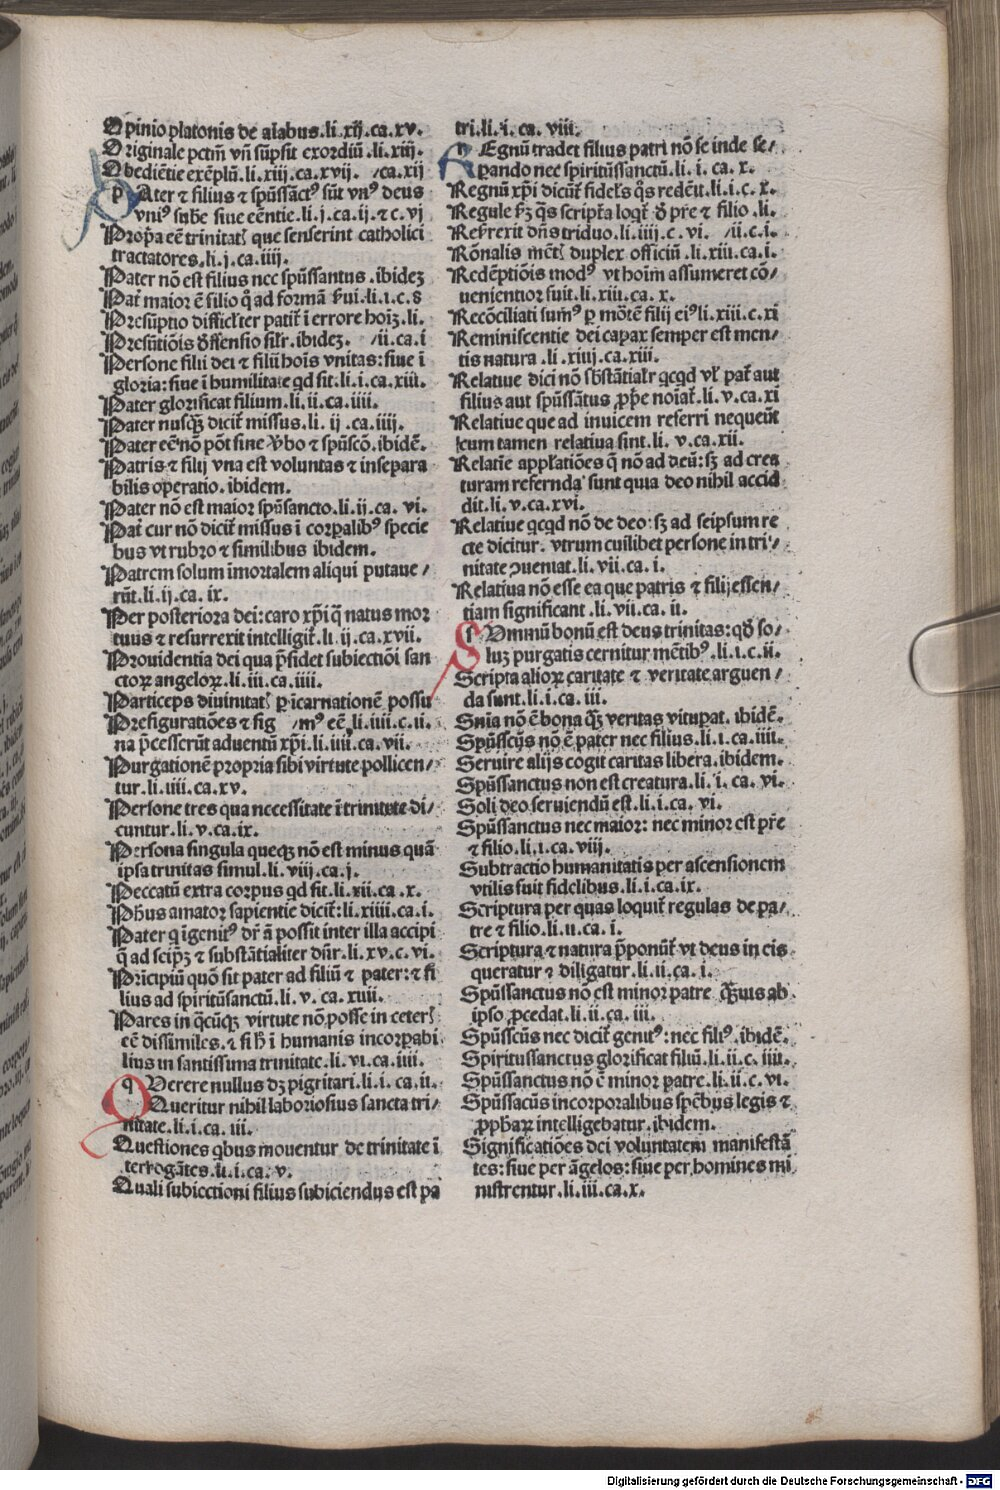 Opinio platonis de aīabus.li.xij.ca.xv.
Originale pctm̄ vn̄ sūpsit exordiū.li.xiij.
Obediētie exēplū.li.xiij.ca.xvij. /ca.xij
PAter et filius ⁊ spūssāctꝰ sūt vnꝰ deus
vniꝰ sube siue eēntie.li.j.ca.ij.⁊ c.vj
Propa eē trinitatꝭ que senserint catholici
tractatores.li.j.ca.iiij.
Pater nō est filius nec spūssantus.ibidez
Pat̄ maior ē filio ꝙ ad formā s̄ui.li.ı.c.8
Presūptio difficl̄ter patit̄ ī errore hoīz.li.
Presūtiōis offensio silr̄.ibidez. /ii.ca.i
Persone filii dei ⁊ filii hoīs vnitas: siue ī
gloria: siue ī humilitate qd sit.li.i.ca.xiii.
Pater glorificat filium.li.ii.ca.iiii.
Pater nusqꝫ dicit̄ missus.li.ij.ca.iiij.
Pater eē nō pōt sine v̄bo ⁊ spūscō.ibidē.
Patris ⁊ filij vna est voluntas ⁊ insepara
bilis operatio.ibidem.
Pater nō est maior spūsancto.li.ij.ca. vi.
Pat̄ cur nō dicit̄ missus ī corpalibꝰ specie
bus vt rubro ⁊ similibus ibidem.
Patrem solum īmortalem aliqui putaue/
rūt.li.ij.ca.ix.
Per posteriora dei: caro xp̄i q̄ natus mor
tuus ⁊ resurrexit intelligit̄.li.ij.ca.xvii.
Prouidentia dei qua p̄sidet subiectiōi san
ctoꝝ angeloꝝ.li.iii.ca.iiii.
Particeps diuinitatꝭ ꝑ icarnationē possu
Prefiguratiōes ⁊ fig /mꝰ eē.li.iiii.c.ii.
na p̄cesserūt aduentū xp̄i.li.iiii.ca.vii.
Purgationē propria sibi virtute pollicen/
tur.li.iiii.ca.xv.
Persone tres qua necessitate ī trinitate di/
cuntur.li.v.ca.ix.
Persona singula queqꝫ nō est minus quā
ipsa trinitas simul.li.viij.ca.j.
Peccatū extra corpus qd sit.li.xii.ca.x.
Phūs amator sapientie dicit̄:li.xiiii.ca.i.
Pater q īgenitꝰ dr̄ ā possit inter illa accipi
q̄ ad seipꝫ ⁊ substātialiter dūr.li.xv.c.vi.
Prīcipiū quō sit pater ad filiū ⁊ pater:⁊ fi
lius ad spiritūsanctū.li.v.ca.xiiii.
Pares in q̄cūqꝫ virtute nō posse in ceterꝭ
eē dissimiles.⁊ si h̄ ī humanis incorpabi
lius in santissima trinitate.li.vi.ca.iiii.
QVerere nullus dꝫ pigritari.li.i.ca.ii.
Queritur nihil laboriosius sancta tri/
nitate.li.i.ca.iii.
Questiones qbus mouentur de trinitate ī
terrogātes.li.i.ca.v.
Quali subiectioni filius subiciendus est pa
tri.li.i.ca.viii.
REgnū tradet filius patri nō se inde se/
parando nec spiritūssanctū.li.i.ca.x.
Regnū xp̄i dicūt̄ fideles q̄s redēit.li.i.c.x.
Regule sꝫ q̄s scriptā loqt̄ ð pr̄e ⁊ filio.li.
Resr̄exit dn̄s triduo.li.iiij.c.vi. /ii.c.i.
Rōnalis mētꝭ duplex officiū.li.xiii.ca.i.
Redēptiōis modꝰ vt hoīm assumeret cō/
uenientior fuit.li.xiii.ca.x.
Recōciliati sumꝰ ꝑ mōtē filij eiꝰ li.xiii.c.xi
Reminiscentie dei capax semper est men/
tis natura.li.xiiij.ca.xiii.
Relatiue dici nō sb̄stātial̄r qcqd vl̄ pat̄ aut
filius aut spūssātus ꝓpē noīat̄.li.v.ca.xi
Relatiue que ad inuicem referri nequeūt
cum tamen relatiua sint.li.v.ca.xii.
Relatīe appłatiōes q̄ nō ad deū: sꝫ ad crea
turam referndą sunt quia deo nihil accid
dit.li.v.ca.xvi.
Relatiue qcqd nō de deo: sꝫ ad seipsum re
cte dicitur. vtrum cuilibet persone in tri/
nitate ꝯueniat.li.vii.ca.i.
Relatiua nō esse ea que patris ⁊ filij essen/
tiam significant.li.vii.ca.ii.
SVmmū bonū est deus trinitas: qð so/
luz purgatis cernitur mētibꝰ.li.i.c.ii.
Scripta alioꝝ caritate ⁊ veritate arguen/
da sunt.li.i.ca.iii.
Snīa nō ē bona qꝫ veritas vitupat̄.ibidē.
Spūsscūs nō ē pater nec filius.li.i.ca.iiii.
Seruire alijs cogit caritas libera.ibidem.
Spūssanctus non est creatura.li.i.ca.vi.
Soli deo seruiendū est.li.i.ca.vi.
Spūssanctus nec maior: nec minor est pr̄e
⁊ filio.li.ı.ca.viij.
Subtractio humanitatis per ascensionem
vtilis fuit fidelibus.li.i.ca.ix.
Scriptura per quas loquit̄ regulas de pa/
tre ⁊ filio.li.ii.ca.i.
Scriptura ⁊ natura p̄ponūt̄ vt deus in eis
queratur ⁊ diligatur.li.ii.ca.i.
Spūssanctus nō est minor patre qꝫuis ab
ipso ꝓcedat.li.ii.ca.iii.
Spūsscūs nec dicit̄ genitꝰ: nec filiꝰ.ibidē.
Spiritussanctus glorificat filiū.li.ii.c.iiii.
Spūssanctus nō ē minor patre.li.ii.c.vi.
Spūssacūs incorporalibus spēbus legis ⁊
ꝓphaꝝ intelligebatur.ibidem.
Significatiōes dei voluntatem manifestā
tes: siue per āgelos: siue per homines mi
nistrentur.li.iii.ca.x.
Digitalisierung gefördert durch die Deutsche Forschungsgemeinschaft - DFG